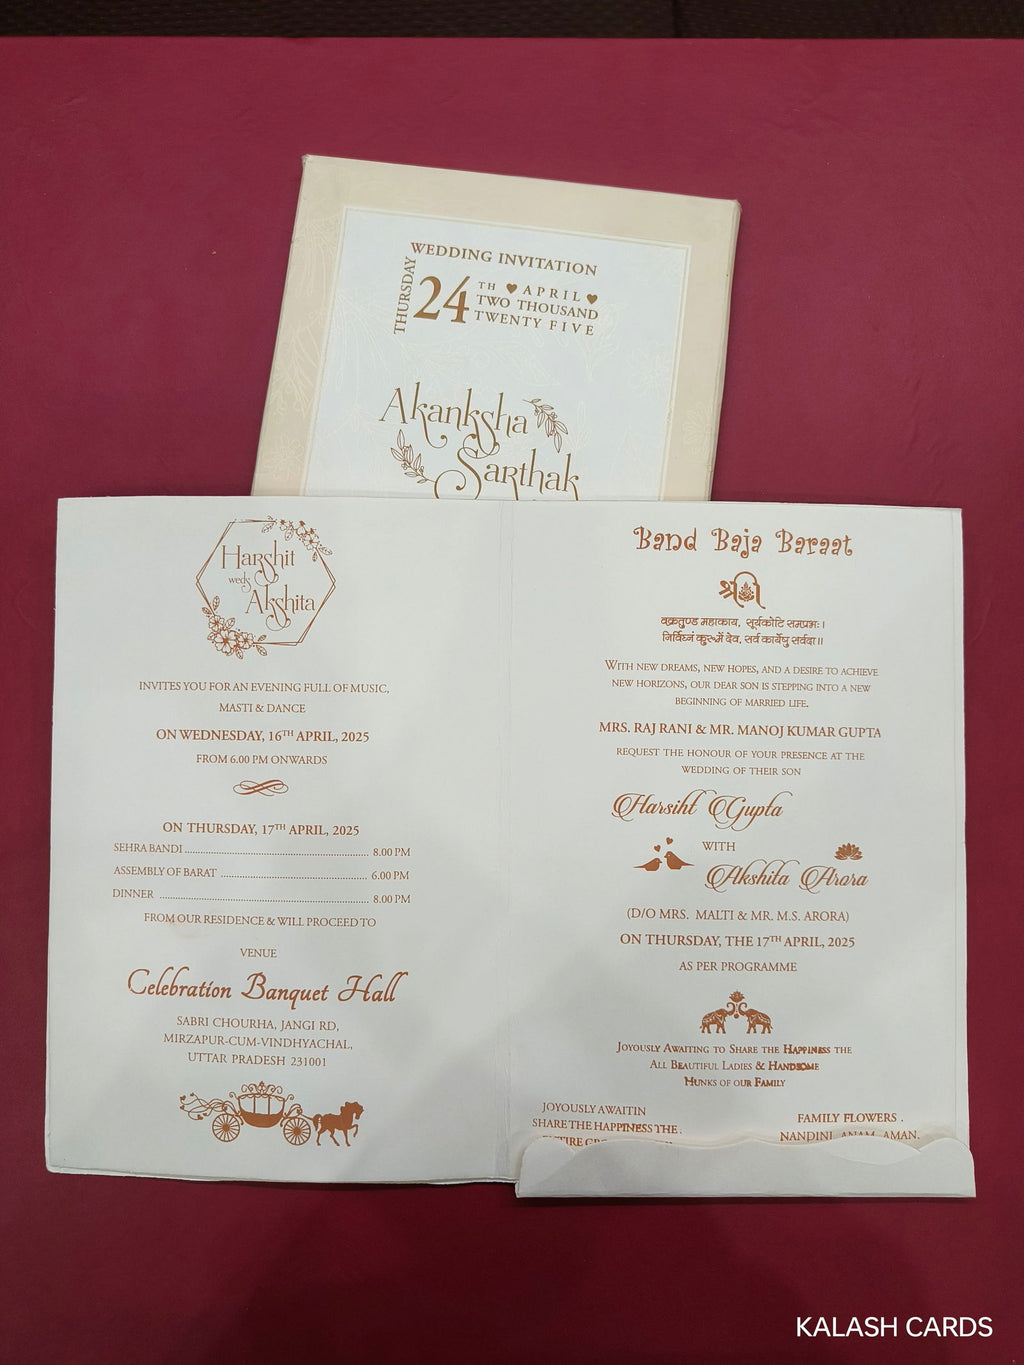 WEDDING INVITATION
THURSDAY
24 TH ♥ APRIL ♥
TWO THOUSAND
TWENTY FIVE
Akanksha
Sarthak
Harshit
weds
Akshita
INVITES YOU FOR AN EVENING FULL OF MUSIC,
MASTI & DANCE
ON WEDNESDAY, 16TH APRIL, 2025
FROM 6.00 PM ONWARDS
ON THURSDAY, 17TH APRIL, 2025
SEHRA BANDI ........................ 8.00 PM
ASSEMBLY OF BARAT ........................ 6.00 PM
DINNER ........................ 8.00 PM
FROM OUR RESIDENCE & WILL PROCEED TO
VENUE
Celebration Banquet Hall
SABRI CHOURHA, JANGI RD,
MIRZAPUR-CUM-VINDHYACHAL,
UTTAR PRADESH 231001
Band Baja Baraat
श्री
वक्रतुण्ड महाकाय, सूर्यकोटि समप्रभः।
निर्विघ्नं कुरूमें देव, सर्व कार्येषु सर्वदा॥
WITH NEW DREAMS, NEW HOPES, AND A DESIRE TO ACHIEVE
NEW HORIZONS, OUR DEAR SON IS STEPPING INTO A NEW
BEGINNING OF MARRIED LIFE.
MRS. RAJ RANI & MR. MANOJ KUMAR GUPTA
REQUEST THE HONOUR OF YOUR PRESENCE AT THE
WEDDING OF THEIR SON
Harsiht Gupta
WITH
Akshita Arora
(D/O MRS. MALTI & MR. M.S. ARORA)
ON THURSDAY, THE 17TH APRIL, 2025
AS PER PROGRAMME
JOYOUSLY AWAITING TO SHARE THE HAPPINESS THE
ALL BEAUTIFUL LADIES & HANDSOME
HUNKS OF OUR FAMILY
JOYOUSLY AWAITIN
SHARE THE HAPPINESS THE .
FAMILY FLOWERS .
NANDINI, ANAM, AMAN.
KALASH CARDS